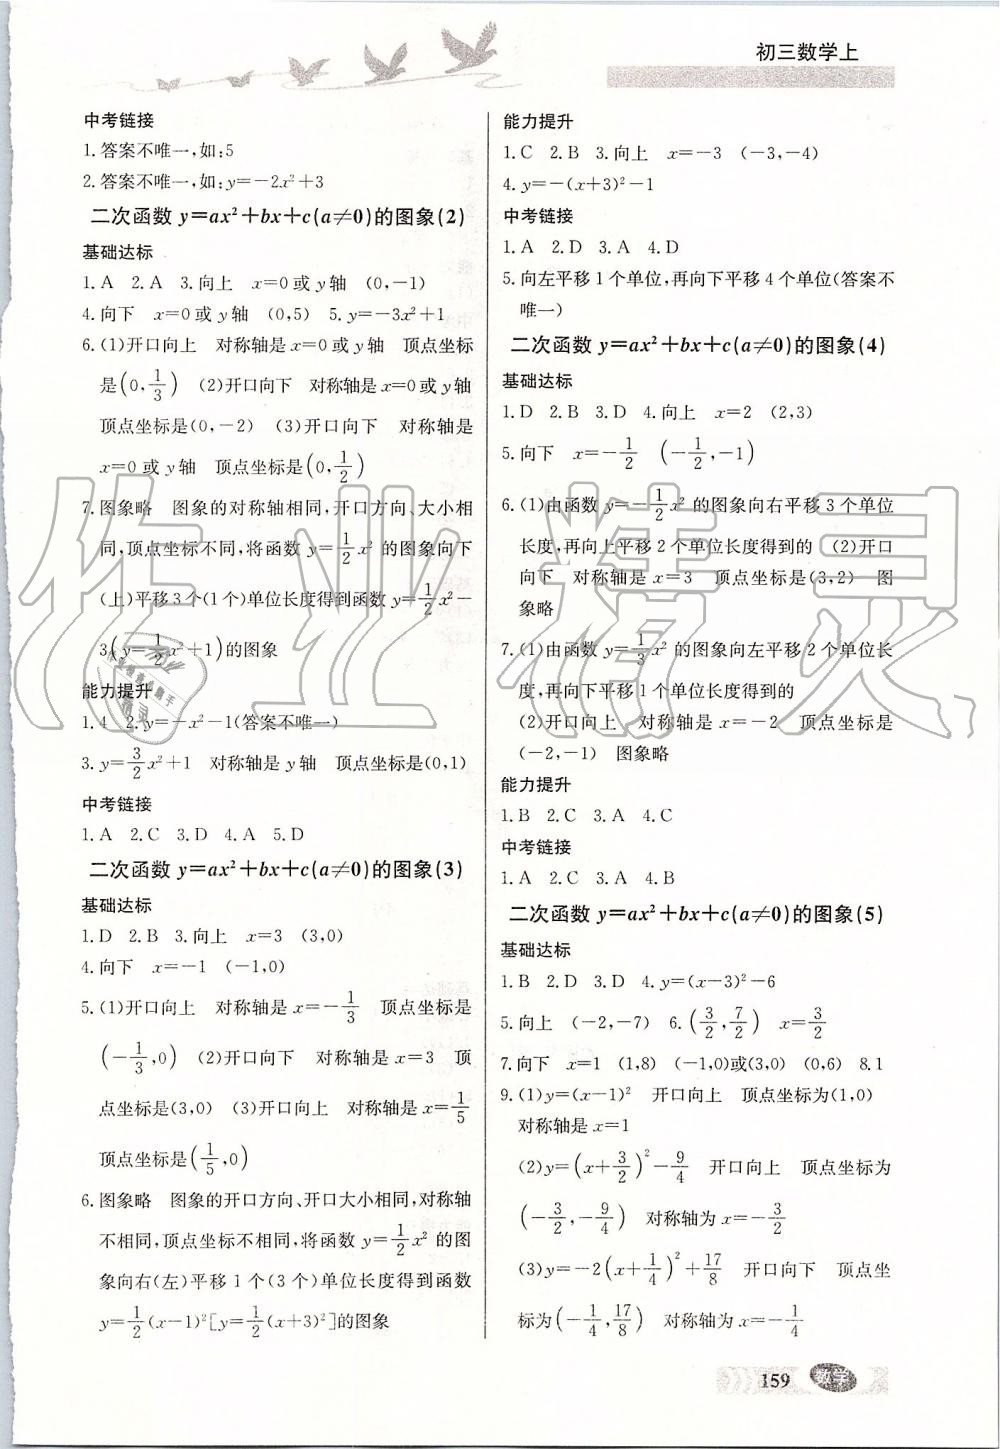 初三数学上
中考链接
1.答案不唯一,如:5
2.答案不唯一,如:y=-2x²+3
二次函数 y=ax²+bx+c(a≠0)的图象(2)
基础达标
1.A 2.A 3.向上 x=0或y轴 (0,-1)
4.向下 x=0或y轴 (0,5) 5.y=-3x²+1
6.(1)开口向上 对称轴是x=0或y轴 顶点坐标
是(0,1/3) (2)开口向下 对称轴是x=0或y轴
顶点坐标是(0,-2) (3)开口向下 对称轴是
x=0或y轴 顶点坐标是(0,1/2)
7.图象略 图象的对称轴相同,开口方向、大小相
同,顶点坐标不同,将函数y=1/2x²的图象向下
(上)平移3个(1个)单位长度得到函数y=1/2x²-
3(y=1/2x²+1)的图象
能力提升
1.4 2.y=-x²-1(答案不唯一)
3.y=3/2x²+1 对称轴是y轴 顶点坐标是(0,1)
中考链接
1.A 2.C 3.D 4.A 5.D
二次函数 y=ax²+bx+c(a≠0)的图象(3)
基础达标
1.D 2.B 3.向上 x=3 (3,0)
4.向下 x=-1 (-1,0)
5.(1)开口向上 对称轴是x=-1/3 顶点坐标是
(-1/3,0) (2)开口向下 对称轴是x=3 顶
点坐标是(3,0) (3)开口向上 对称轴是x=1/5
顶点坐标是(1/5,0)
6.图象略 图象的开口方向、开口大小相同,对称轴
不相同,顶点坐标不相同,将函数y=1/2x²的图
象向右(左)平移1个(3个)单位长度得到函数
y=1/2(x-1)²[y=1/2(x+3)²]的图象
能力提升
1.C 2.B 3.向上 x=-3 (-3,-4)
4.y=-(x+3)²-1
中考链接
1.A 2.D 3.A 4.D
5.向左平移1个单位,再向下平移4个单位(答案不
唯一)
二次函数 y=ax²+bx+c(a≠0)的图象(4)
基础达标
1.D 2.B 3.D 4.向上 x=2 (2,3)
5.向下 x=-1/2 (-1/2,-1)
6.(1)由函数y=-1/2x²的图象向右平移3个单位
长度,再向上平移2个单位长度得到的 (2)开口
向下 对称轴是x=3 顶点坐标是(3,2) 图
象略
7.(1)由函数y=1/3x²的图象向左平移2个单位长
度,再向下平移1个单位长度得到的
(2)开口向上 对称轴是x=-2 顶点坐标是
(-2,-1) 图象略
能力提升
1.B 2.C 3.A 4.C
中考链接
1.A 2.C 3.A 4.B
二次函数 y=ax²+bx+c(a≠0)的图象(5)
基础达标
1.B 2.D 3.D 4.y=(x-3)²-6
5.向上 (-2,-7) 6.(3/2,7/2) x=3/2
7.向下 x=1 (1,8) (-1,0)或(3,0) (0,6) 8.1
9.(1)y=(x-1)² 开口向上 顶点坐标为(1,0)
对称轴是x=1
(2)y=(x+3/2)²-9/4 开口向上 顶点坐标为
(-3/2,-9/4) 对称轴为x=-3/2
(3)y=-2(x+1/4)²+17/8 开口向下 顶点坐
标为(-1/4,17/8) 对称轴为x=-1/4
159 数学
作业精灵